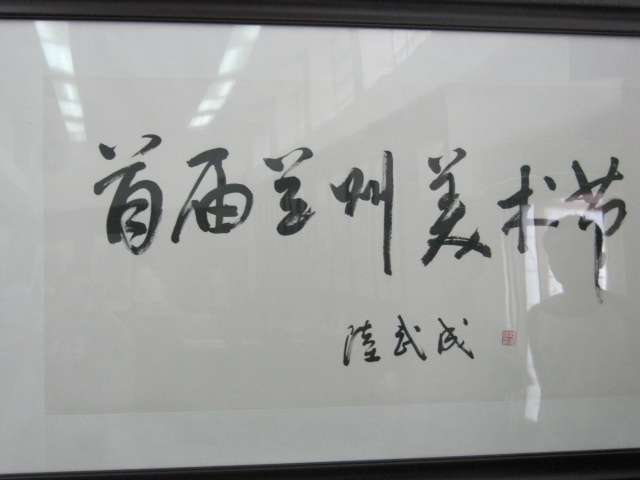 首届兰州美术节
陸武成